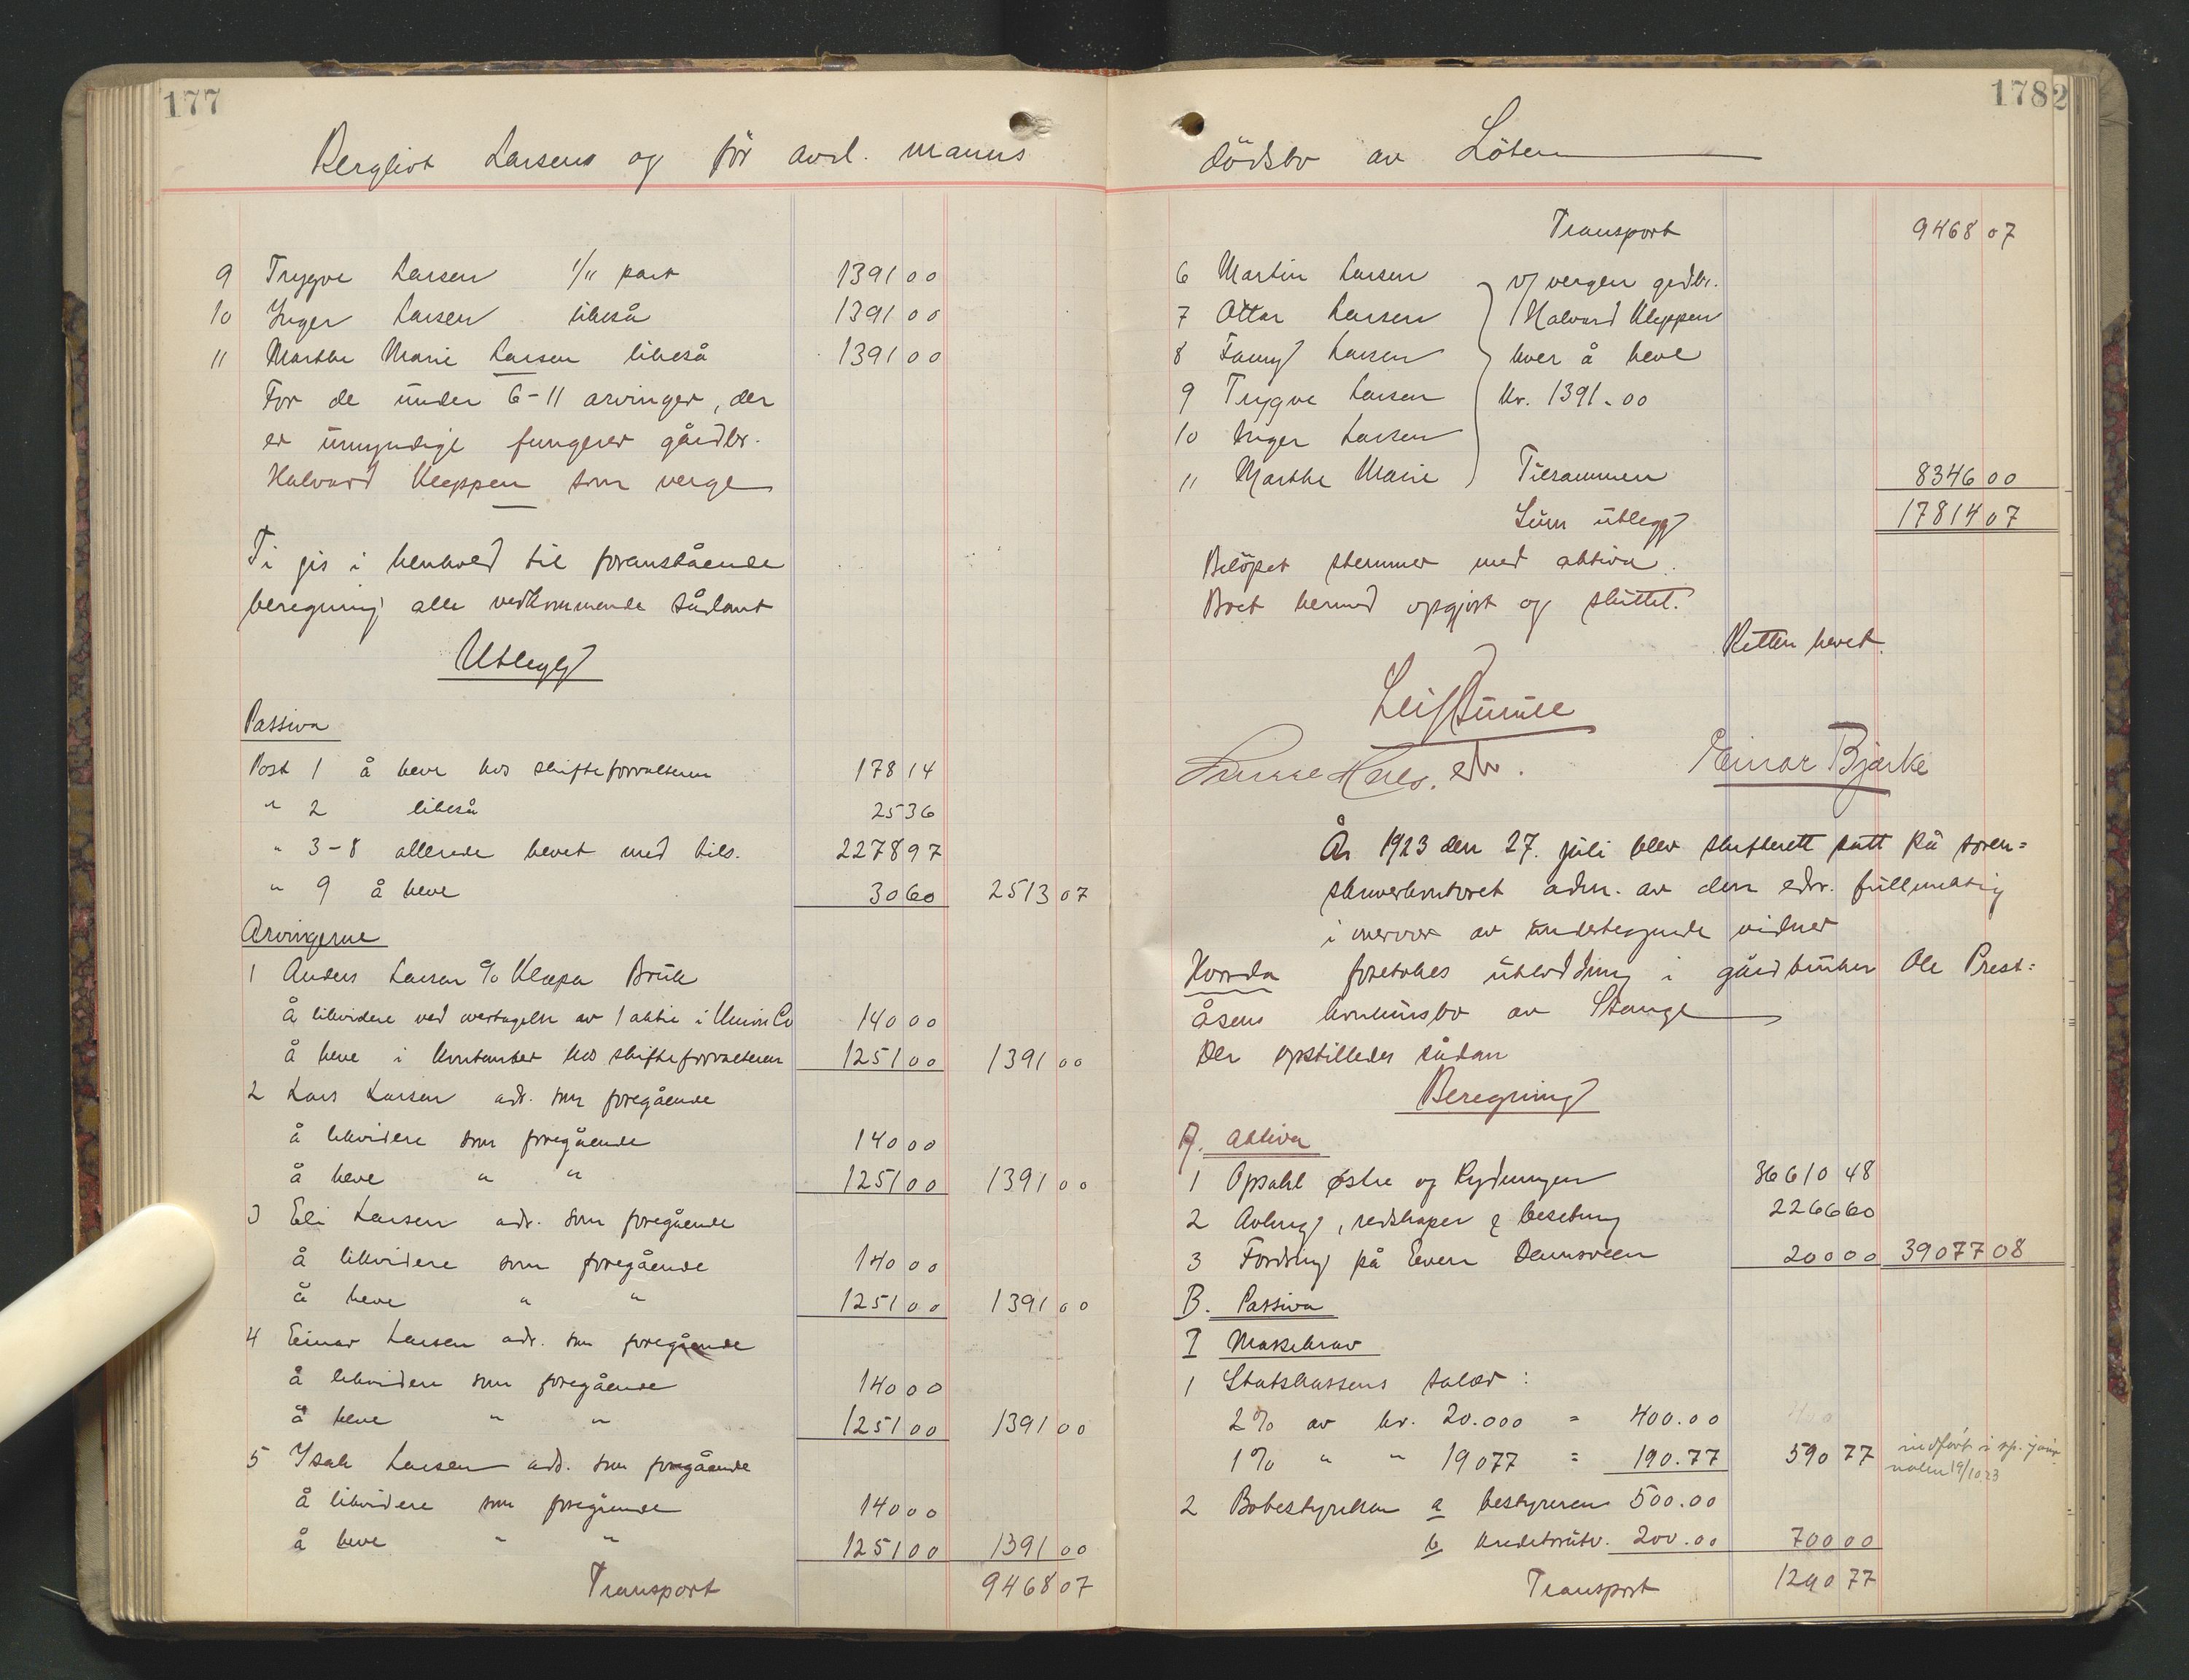 177
Bergliot Larsens og för avd. manns
9 Trygve Larsen 1/11 part 1391 00
10 Inger Larsen likeså 1391 00
11 Marthe Marie Larsen likeså 1391 00
For de under 6-11 arvinger, der
er umyndige fungerer gårdbr.
Halvard Kleppen som verge
Ti gis i henhold til foranstående
beregning alle vedkommende sådant
Utlegg
Passiva
Post 1 å heve hos skifteforvalteren 178 14
" 2 likeså 25 36
" 3-8 allerede hevet med tils. 2278 97
" 9 å heve 30 60 2513 07
Arvingerne
1 Anders Larsen c/o Klæpa Bruk
Å likvidere ved overtagelse av 1 aktie i Union Co 140 00
å heve i kontanter hos skifteforvalteren 1251 00 1391 00
2 Lars Larsen adr. som foregående
å likvidere som foregående 140 00
å heve " " 1251 00 1391 00
3 Eli Larsen adr. som foregående
å likvidere som foregående 140 00
å heve " " 1251 00 1391 00
4 Einar Larsen adr. som foregående
å likvidere som foregående 140 00
å heve " " 1251 00 1391 00
5 Isak Larsen adr. som foregående
å likvidere som foregående 140 00
å heve " " 1251 00 1391 00
Transport 9468 07
178
2
dödsbo av Löten
Transport 9468 07
6 Martin Larsen v/ vergen grdbr.
7 Ottar Larsen Halvard Kleppen
8 Fanny Larsen hver å heve
9 Trygve Larsen kr. 1391.00
10 Inger Larsen
11 Marthe Marie Tilsammen 8346 00
Sum utlegg 17814 07
Belöpet stemmer med aktiva.
Boet hermed opgjort og sluttet.
Retten hevet.
Einar Bjørke
År 1923 den 27. juli blev skifterett satt på soren=
skriverkontoret adm. av den edsv. fullmektig
i overvær av undertegnede vidner
Hvorda foretokes utlodding i gårdbruker Ole Prest=
åsens konkursbo av Stange
Der opstilledes sådan
Beregning
A. Aktiva
1 Opsahl østre og Rydningen 36610 48
2 Avling, redskaper & besetning 2266 60
3 Fordring på Even Damsveen 200 00 39077 08
B. Passiva
I Massekrav
1 Statskassens salær:
2% av kr. 20.000 = 400.00
1% " " 19077 = 190.77 590 77 indført i sp. jour
nalen 19/10.23
2 Bobestyrelsen a bestyreren 500.00
b kreditorutv. 200.00 700 00
Transport 1290 77